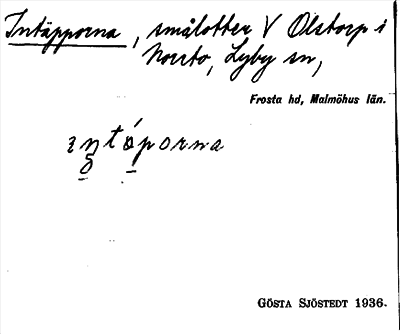 Intäpporna, smålotter V Olstorp i
Norsto, Lyby sn,
Frosta hd, Malmöhus län.
ıŋtáporna
GÖSTA SJÖSTEDT 1936.